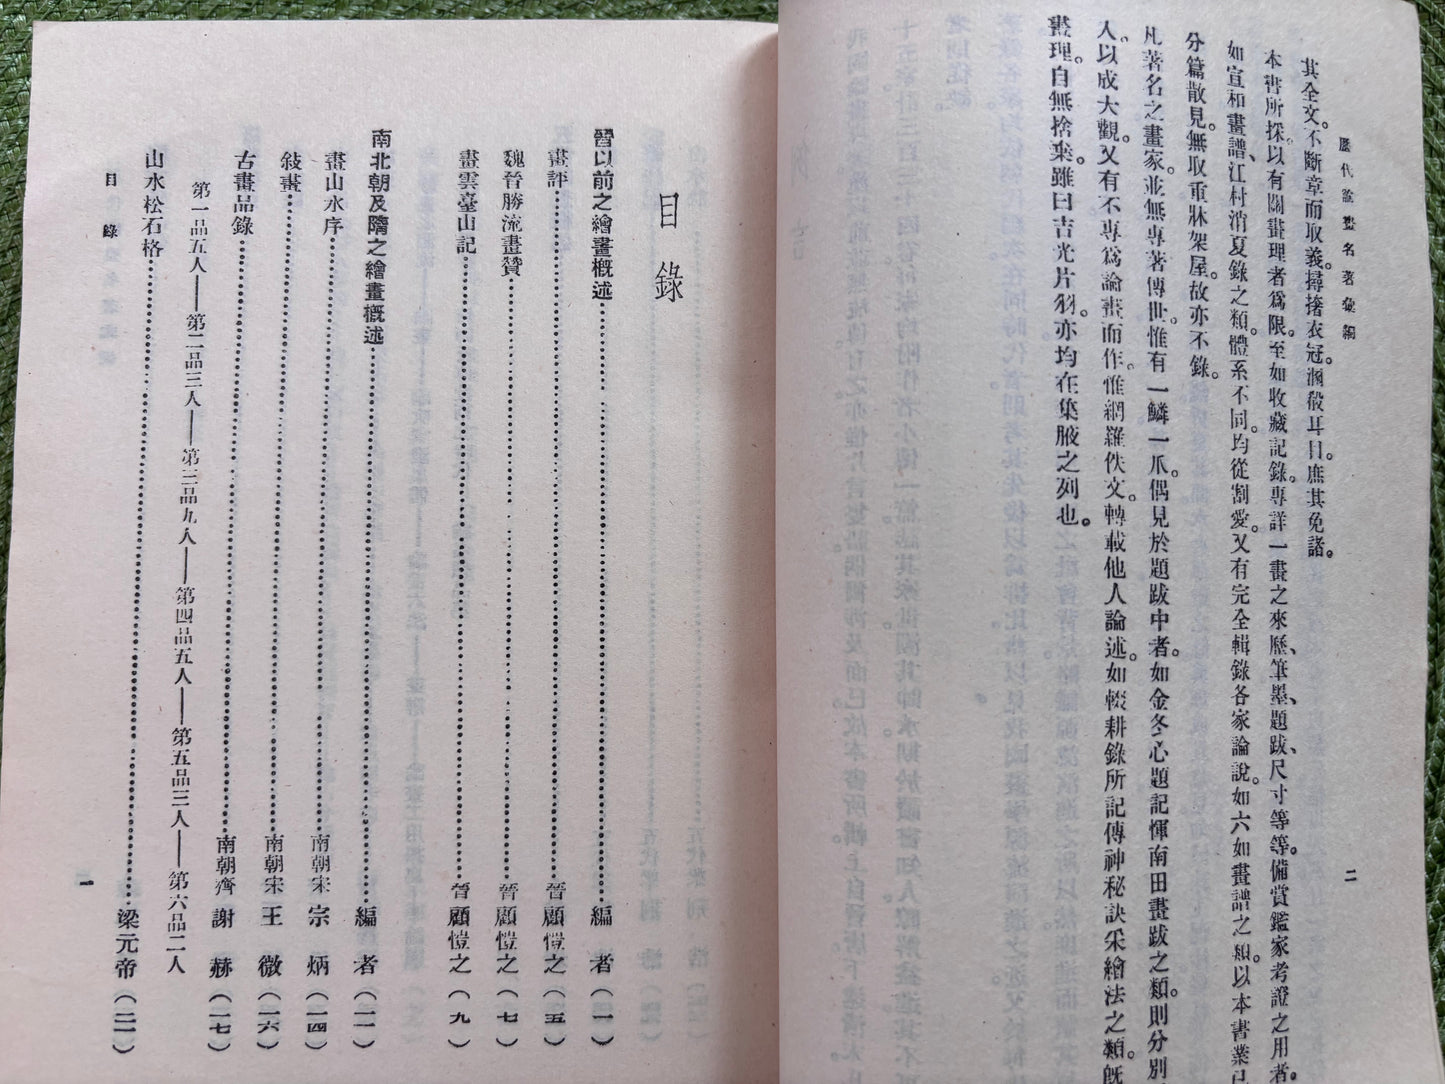 歷代論畫名著彙編
二
其全文。不斷章而取義。撏撦衣冠。涸殽耳目。庶其免諸。
本書所採。以有關畫理者爲限。至如收藏記錄。專詳一畫之來歷、筆墨、題跋、尺寸等等。備賞鑑家考證之用者。
如宣和畫譜、江村消夏錄之類。體系不同。均從割愛。又有完全輯錄各家論說。如六如畫譜之類。以本書業已
分篇散見。無取重牀架屋。故亦不錄。
凡著名之畫家。並無專著傳世。惟有一鱗一爪。偶見於題跋中者。如金冬心題記惲南田畫跋之類。則分別
人。以成大觀。又有不專爲論畫而作。惟網羅佚文。轉載他人論述。如輟耕錄所記傳神秘訣采繪法之類。旣
畫理。自無捨棄。雖曰吉光片羽。亦均在集腋之列也。
目錄
晉以前之繪畫概述……編者（一）
畫評……晉顧愷之（五）
魏晉勝流畫贊……晉顧愷之（七）
畫雲臺山記……晉顧愷之（九）
南北朝及隋之繪畫概述……編者（一一）
畫山水序……南朝宋宗炳（一四）
敍畫……南朝宋王微（一六）
古畫品錄……南朝齊謝赫（一七）
第一品五人——第二品三人——第三品九人——第四品五人——第五品三人——第六品二人
山水松石格……梁元帝（二一）
目錄
一